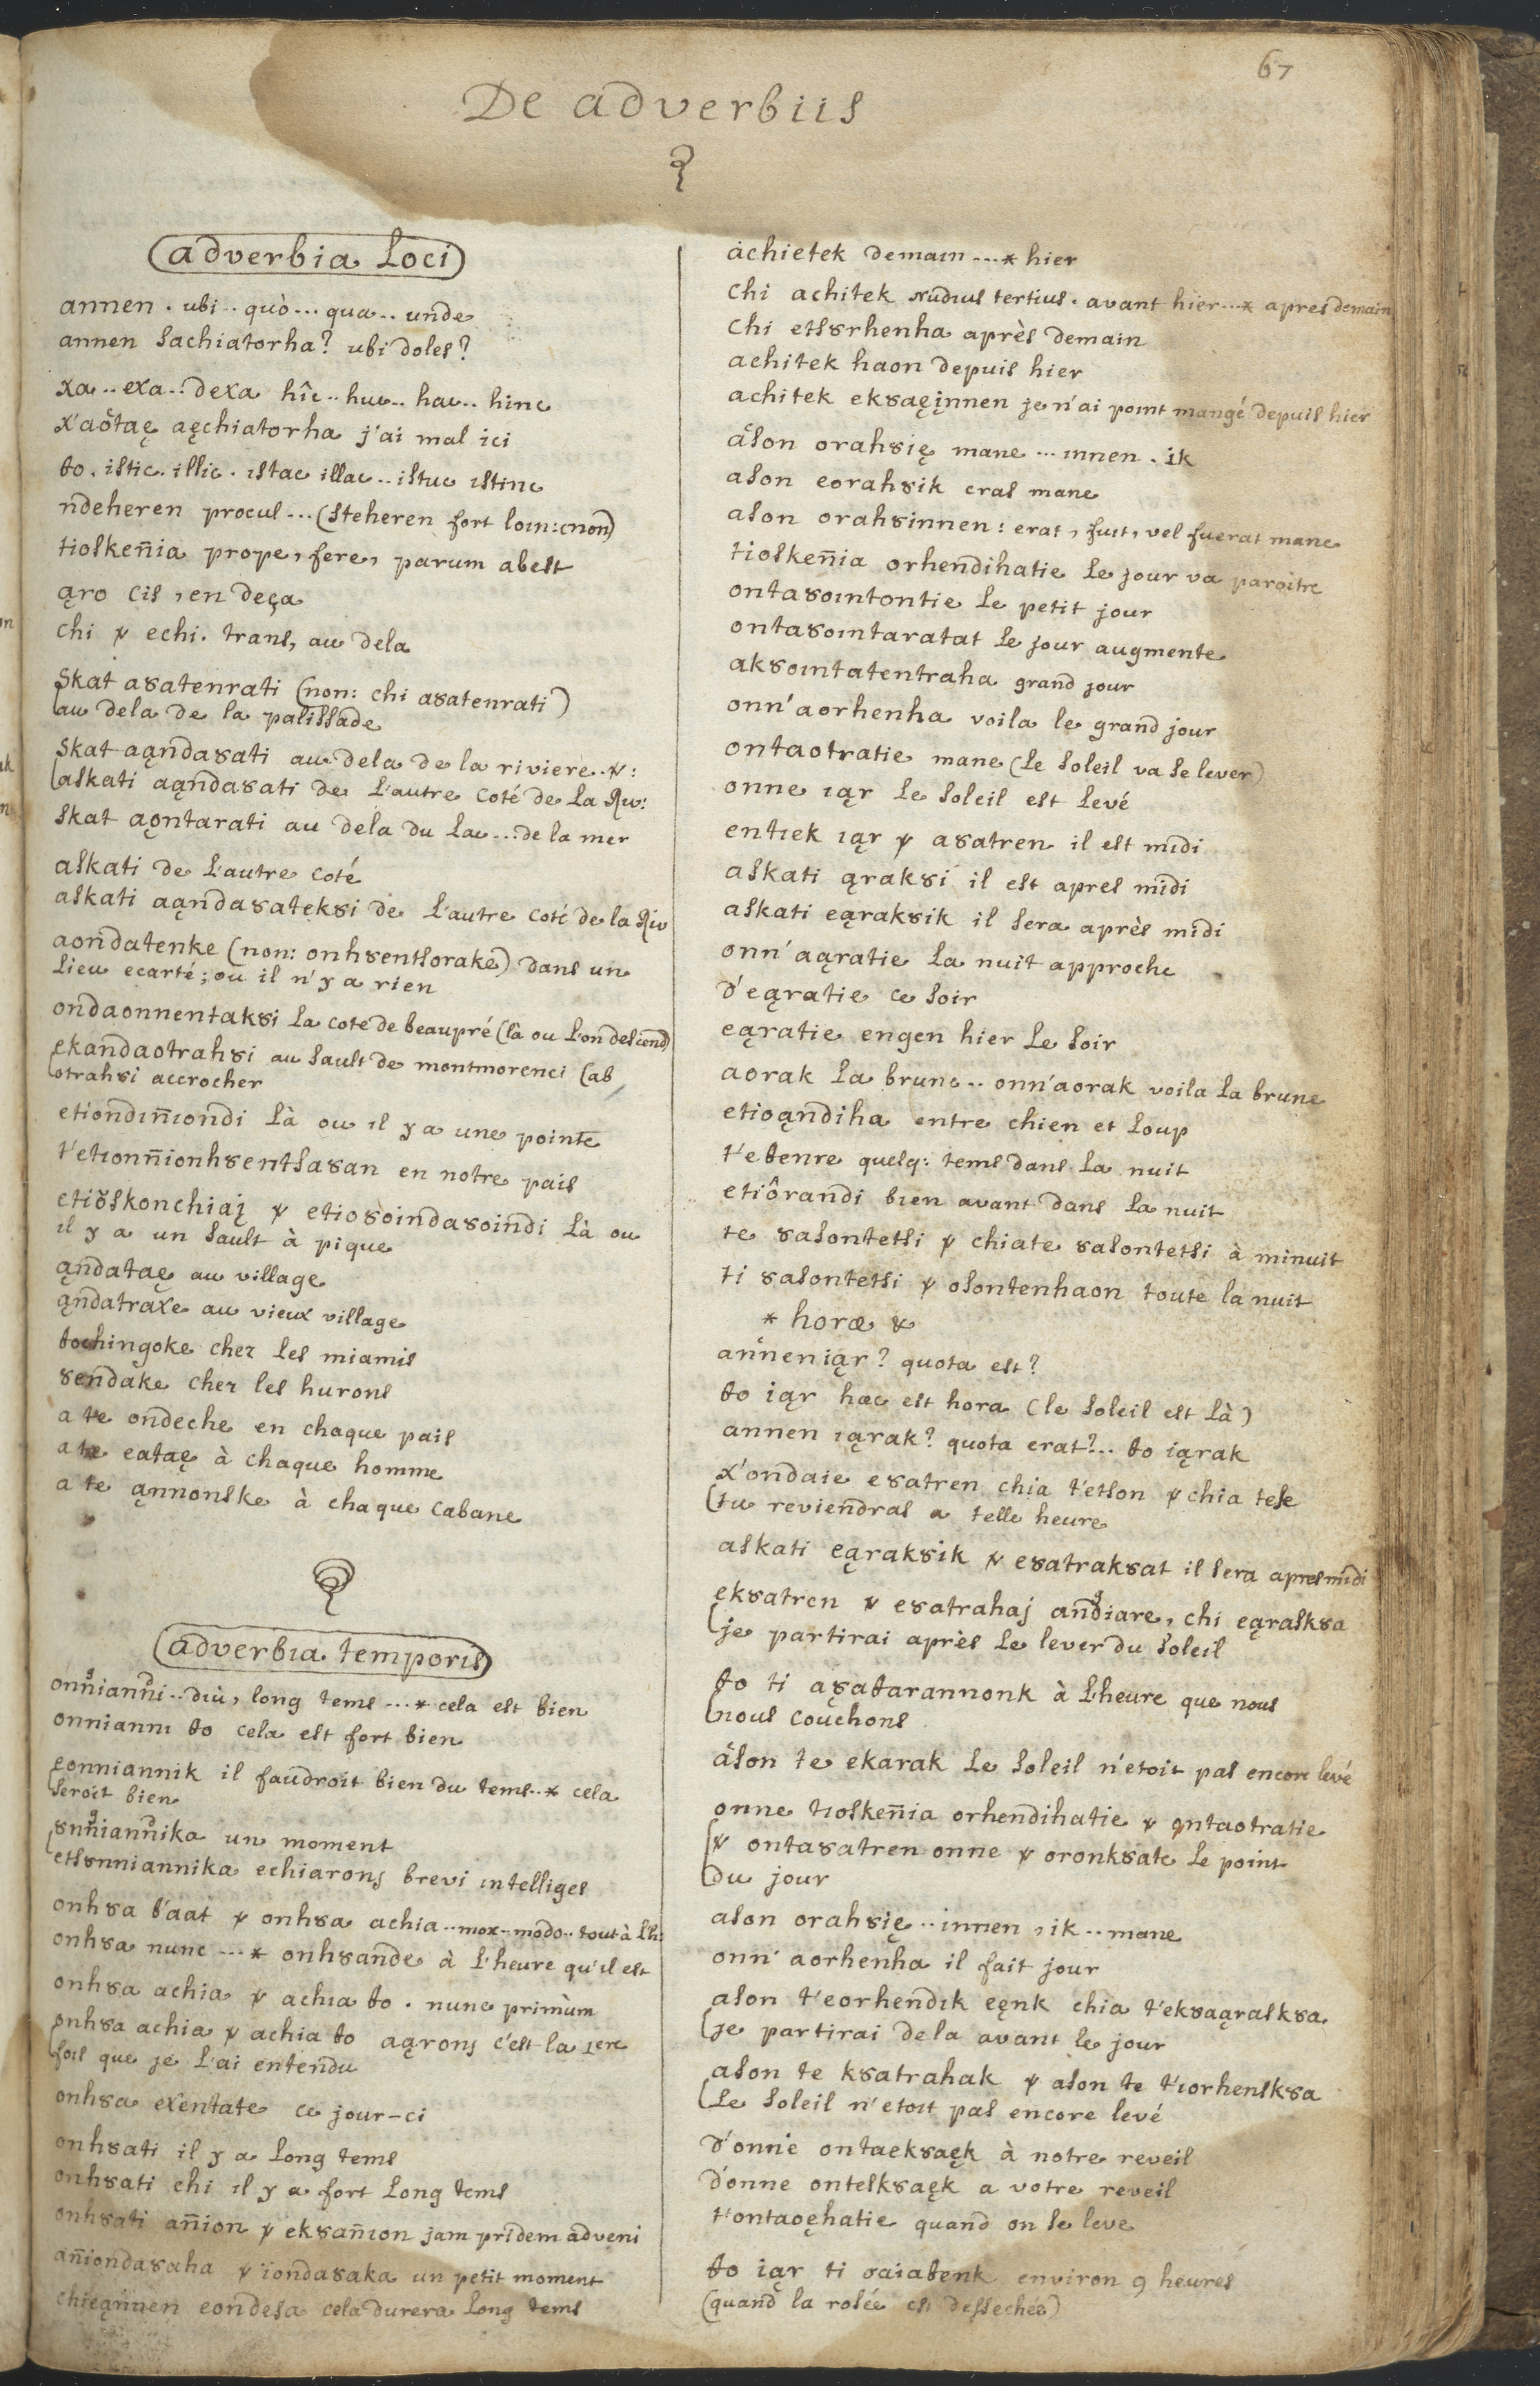 67
De adverbiis
adverbia Loci
annen . ubi .. quò ... qua .. unde
annen sachiatorha? ubi doles?
xa .. exa .. dexa hîc .. huc .. hac .. hinc
x'aötaę aęchiatorha j'ai mal ici
ȣo . istic . illic . istac illac .. istuc istinc
ndeheren procul ... (steheren fort loin: (non)
tioskeñia prope, fere, parum abest
ąro cis, en deça
chi ꝟ echi . trans, au dela
skat aȣatenrati (non: chi aȣatenrati)
au dela de la palissade
skat aąndaȣati au dela de la riviere .. ꝟ:
askati aąndaȣati de L'autre coté de La Riv:
skat aǫntarati au dela du Lac ... de la mer
askati de L'autre coté
askati aąndaȣateksi de L'autre coté de la Riv
aondatenke (non: onhȣentsorake) dans un
Lieu ecarté; ou il n'y a rien
ondaonnentakȣi La cote de beaupré (là ou L'on descend)
ekandaotrahȣi au sault de montmorenci (ab
otrahȣi accrocher
etiondiñiondi Là ou il y a une pointe
t'etionñionhȣentsaȣan en notre païs
etiöskonchiaį ꝟ etioȣoindaȣoindi Là ou
il y a un Sault à pique
ąndataę au village
ąndatraxe au vieux village
tochingoke chez Les miamis
ȣendake chez les hurons
a te ondeche en chaque païs
a te eataę à chaque homme
a te ąnnonske à chaque cabane
adverbia temporis
onnianni .. diù, long tems ... * cela est bien
onnianni to cela est fort bien
eonniannik il faudroit bien du tems .. * cela
seroit bien
ȣnniannika un moment
etsȣnniannika echiarons brevi intelliges
onhȣa t'aat ꝟ onhȣa achia .. mox .. modo .. tout à L'h:
onhȣa nunc ... * onhȣande à L'heure qu'il est
onhȣa achia ꝟ achia to . nunc primùm
onhȣa achia ꝟ achia to aąrons c'est la 1ere
fois que je L'ai entendu
onhȣa exentate ce jour-ci
onhȣati il y a Long tems
onhȣati chi il y a fort Long tems
onhȣati añion ꝟ ekȣañion jam pridem adveni
añiondaȣaha ꝟ iondaȣaka un petit moment
chieąnnen eondesa cela durera Long tems
achietek demain ... * hier
chi achitek nudius tertius . avant hier ... * apres demain
chi etsȣrhenha après demain
achitek haon depuis hier
achitek ekȣaęįnnen je n'ai point mangé depuis hier
äson orahȣię mane ... innen . ik
ason eorahȣik cras mane
ason orahȣinnen: erat, fuit, vel fuerat mane
tioskeñia orhendihatie Le jour va paroitre
ontaȣointontie Le petit jour
ontaȣointaratat Le jour augmente
akȣointatentraha grand jour
onn'aorhenha voila le grand jour
ontaotratie mane (Le soleil va se lever)
onne iąr Le soleil est Levé
entiek iąr ꝟ aȣatren il est midi
askati ąrakȣi il est apres midi
askati eąrakȣik il sera après midi
onn'aąratie La nuit approche
d'eąratie ce soir
eąratie engen hier Le soir
aorak La brune .. onn'aorak voila La brune
etioąndiha entre chien et Loup
t'etenre quelq: tems dans La nuit
etiôrandi bien avant dans La nuit
te ȣasontetsi ꝟ chiate ȣasontetsi à minuit
ti ȣasontetsi ꝟ osontenhaon toute la nuit
* horæ &
annen iąr? quota est?
to iąr hæc est hora (le soleil est Là)
annen iąrak? quota erat? .. to iąrak
x'ondaie eȣatren chia t'etson ꝟ chia tese
tu reviendras a telle heure
askati eąrakȣik ꝟ eȣatrakȣat il sera apres midi
ekȣatren ꝟ eȣatrahaj andiare, chi eąraskȣa
je partirai après Le lever du soleil
to ti aȣatarannonk à L'heure que nous
nous couchons
äson te ekarak Le soleil n'etoit pas encore levé
onne tioskeñia orhendihatie ꝟ ontaotratie
ꝟ ontaȣatren onne ꝟ oronkȣate Le point
du jour
ason orahȣię .. innen, ik .. mane
onn'aorhenha il fait jour
ason t'eorhendik eęnk chia t'ekȣaąraskȣa
je partirai dela avant le jour
ason te kȣatrahak ꝟ ason te t'iorhenskȣa
Le soleil n'etoit pas encore levé
d'onne ontaekȣaęk à notre reveil
d'onne onteskȣaęk a votre reveil
t'ontaoęhatie quand on se leve
to iąr ti oaiatenk environ 9 heures
(quand la rosée est dessechée)